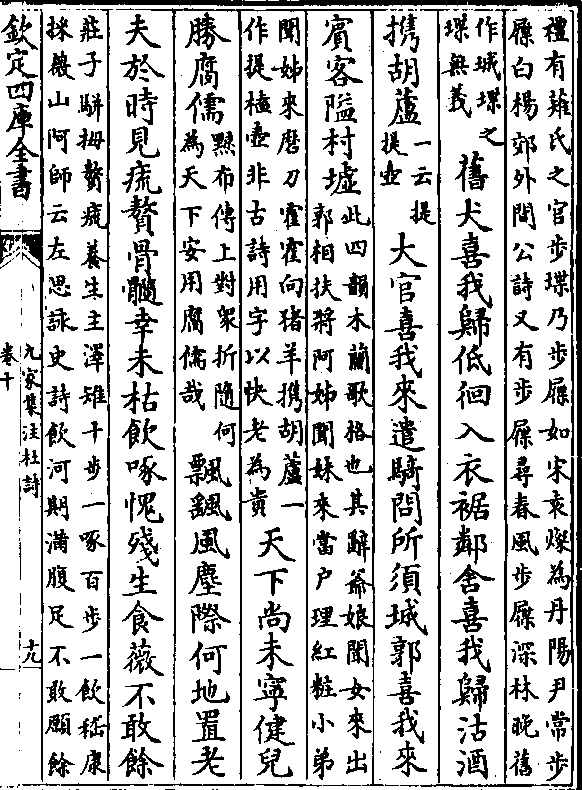 禮有薙氏之官步堞乃步屧如宋袁燦為丹陽尹常步
屧白楊郊外間公詩又有步屧尋春風步屧深林晚舊
作城堞之
堞無義
舊犬喜我歸低徊入衣裾鄰舍喜我歸沽酒
携胡蘆
一云提
提壺
大官喜我來遣騎問所須城郭喜我來
賓客隘村墟
此四韻木蘭歌格也其辭爺娘聞女來出
郭相扶將阿姊聞妹來當戶理紅粧小弟
聞姊來磨刀霍霍向猪羊携胡蘆一
作提榼壺非古詩用字以快老為貴
天下尚未寧健兒
勝腐儒
黥布傳上對衆折隨何
為天下安用腐儒哉
飄颻風塵際何地置老
夫於時見疣贅骨髓幸未枯飲啄愧殘生食薇不敢餘
莊子駢拇贅疣養生主澤雉十步一啄百步一飲嵇康
採薇山阿師云左思詠史詩飲河期滿腹足不敢願餘
欽定四庫全書
九家集注杜詩
卷十
十九